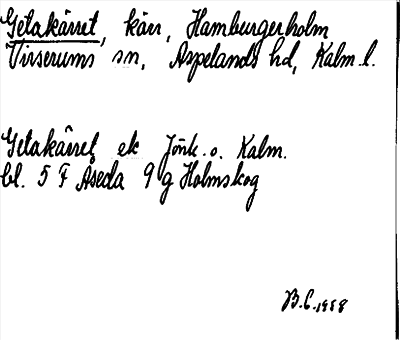 Getakärret, kärr, Hamburgerholm
Virserums sn, Aspelands hd, Kalm. l.
Getakärret, ek Jönk. o. Kalm.
bl. 5 F Åseda 9 g Holmskog
B.C. 1958